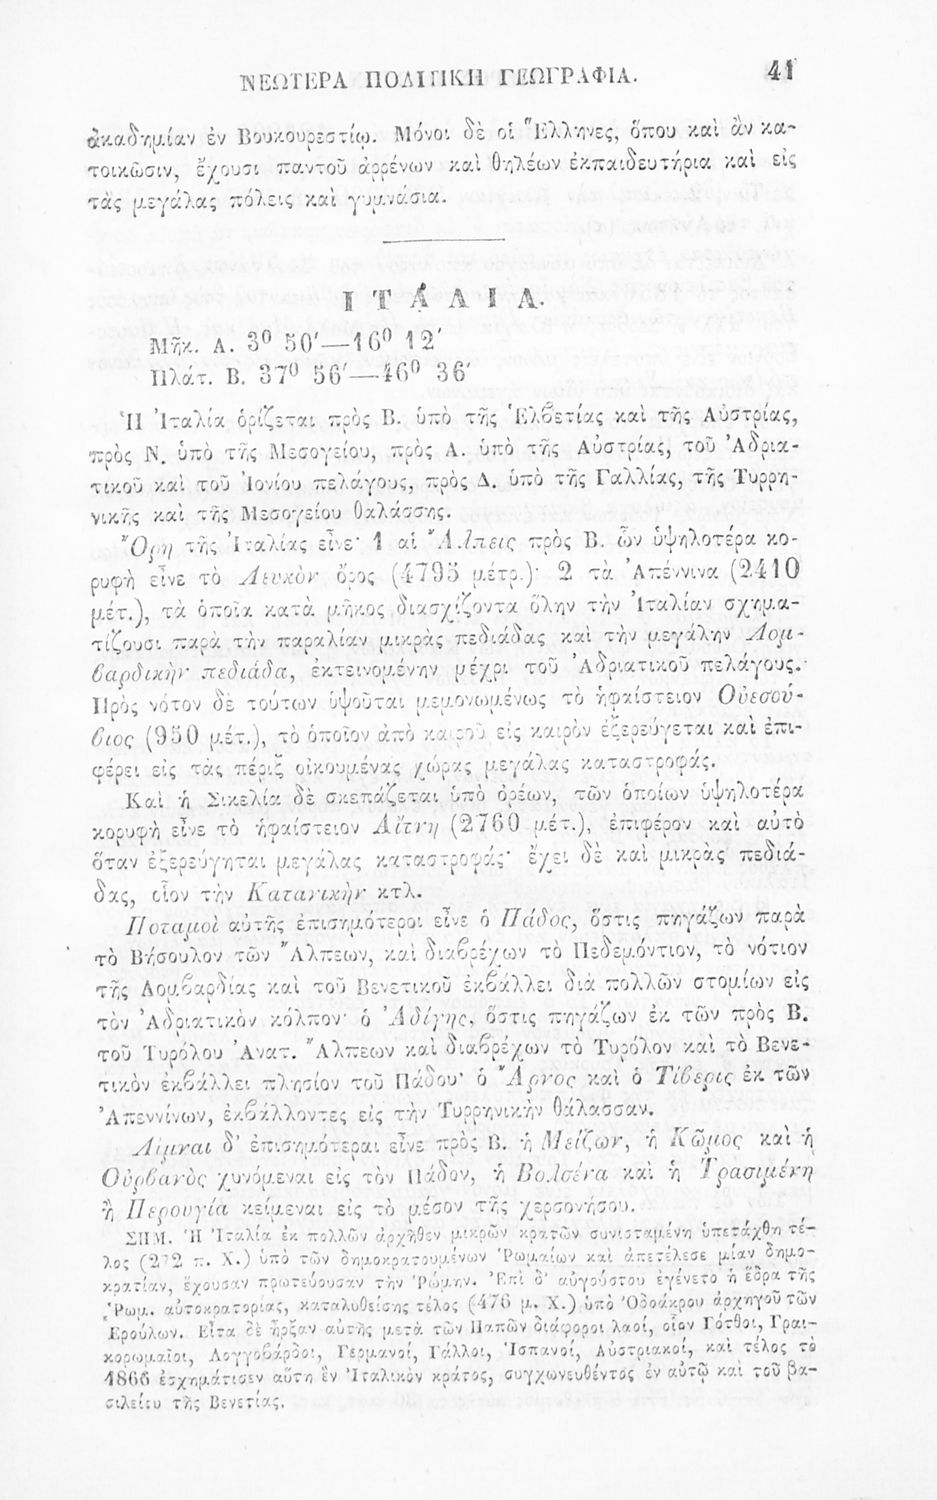 ΝΕΩΤΕΡΑ ΠΟΛΙΤΙΚΗ ΓΕΩΓΡΑΦΙΑ. 41
ἀκαδημίαν ἐν Βουκουρεστίῳ. Μόνοι δὲ οἱ Ἕλληνες, ὅπου καὶ ἂν κα-
τοικῶσιν, ἔχουσι παντοῦ ἀρρένων καὶ θηλέων ἐκπαιδευτήρια καὶ εἰς
τὰς μεγάλας πόλεις καὶ γυμνάσια.
ΙΤΑΛΙΑ.
Μῆκ. Α. 3⁰ 50′—16⁰ 12′
Πλάτ. Β. 37⁰ 56′—46⁰ 36′
Ἡ Ἰταλία ὁρίζεται πρὸς Β. ὑπὸ τῆς Ἑλβετίας καὶ τῆς Αὐστρίας,
πρὸς Ν. ὑπὸ τῆς Μεσογείου, πρὸς Α. ὑπὸ τῆς Αὐστρίας, τοῦ Ἀδρια-
τικοῦ καὶ τοῦ Ἰονίου πελάγους, πρὸς Δ. ὑπὸ τῆς Γαλλίας, τῆς Τυρρη-
νικῆς καὶ τῆς Μεσογείου θαλάσσης.
Ὄρη τῆς Ἰταλίας εἶνε· 1 αἱ Ἄλπεις πρὸς Β. ὧν ὑψηλοτέρα κο-
ρυφὴ εἶνε τὸ Λευκὸν ὄρος (4795 μέτρ.)· 2 τὰ Ἀπέννινα (2410
μέτ.), τὰ ὁποῖα κατὰ μῆκος διασχίζοντα ὅλην τὴν Ἰταλίαν σχημα-
τίζουσι παρὰ τὴν παραλίαν μικρὰς πεδιάδας καὶ τὴν μεγάλην Λομ-
βαρδικὴν πεδιάδα, ἐκτεινομένην μέχρι τοῦ Ἀδριατικοῦ πελάγους.
Πρὸς νότον δὲ τούτων ὑψοῦται μεμονωμένως τὸ ἡφαίστειον Οὐεσού-
βιος (950 μέτ.), τὸ ὁποῖον ἀπὸ καιροῦ εἰς καιρὸν ἐξερεύγεται καὶ ἐπι-
φέρει εἰς τὰς πέριξ οἰκουμένας χώρας μεγάλας καταστροφάς.
Καὶ ἡ Σικελία δὲ σκεπάζεται ὑπὸ ὀρέων, τῶν ὁποίων ὑψηλοτέρα
κορυφὴ εἶνε τὸ ἡφαίστειον Αἴτνη (2760 μέτ.), ἐπιφέρον καὶ αὐτὸ
ὅταν ἐξερεύγηται μεγάλας καταστροφάς· ἔχει δὲ καὶ μικρὰς πεδιά-
δας, οἷον τὴν Κατανικὴν κτλ.
Ποταμοὶ αὐτῆς ἐπισημότεροι εἶνε ὁ Πάδος, ὅστις πηγάζων παρὰ
τὸ Βήσουλον τῶν Ἄλπεων, καὶ διαβρέχων τὸ Πεδεμόντιον, τὸ νότιον
τῆς Λομβαρδίας καὶ τοῦ Βενετικοῦ ἐκβάλλει διὰ πολλῶν στομίων εἰς
τὸν Ἀδριατικὸν κόλπον· ὁ Ἀδίγης, ὅστις πηγάζων ἐκ τῶν πρὸς Β.
τοῦ Τυρόλου Ἀνατ. Ἄλπεων καὶ διαβρέχων τὸ Τυρόλον καὶ τὸ Βενε-
τικὸν ἐκβάλλει πλησίον τοῦ Πάδου· ὁ Ἄρνος καὶ ὁ Τίβερις ἐκ τῶν
Ἀπεννίνων, ἐκβάλλοντες εἰς τὴν Τυρρηνικὴν θάλασσαν.
Λίμναι δ᾿ ἐπισημότεραι εἶνε πρὸς Β. ἡ Μείζων, ἡ Κῶμος καὶ ἡ
Οὐρβανὸς χυνόμεναι εἰς τὸν Πάδον, ἡ Βολσένα καὶ ἡ Τρασιμένη
ἢ Περουγία κείμεναι εἰς τὸ μέσον τῆς χερσονήσου.
ΣΗΜ. Ἡ Ἰταλία ἐκ πολλῶν ἀρχῆθεν μικρῶν κρατῶν συνισταμένη ὑπετάχθη τέ-
λος (272 π. Χ.) ὑπὸ τῶν δημοκρατουμένων Ῥωμαίων καὶ ἀπετέλεσε μίαν δημο-
κρατίαν, ἔχουσαν πρωτεύουσαν τὴν Ῥώμην. Ἐπὶ δ᾿ αὐγούστου ἐγένετο ἡ ἕδρα τῆς
Ῥωμ. αὐτοκρατορίας, καταλυθείσης τέλος (476 μ. Χ.) ὑπὸ Ὀδοάκρου ἀρχηγοῦ τῶν
Ἐρούλων. Εἶτα δὲ ἦρξαν αὐτῆς μετὰ τῶν Παπῶν διάφοροι λαοί, οἷον Γότθοι, Γραι-
κορωμαῖοι, Λογγοβάρδοι, Γερμανοί, Γάλλοι, Ἰσπανοί, Αὐστριακοί, καὶ τέλος τὸ
1866 ἐσχημάτισεν αὕτη ἓν Ἰταλικὸν κράτος, συγχωνευθέντος ἐν αὐτῷ καὶ τοῦ βα-
σιλείου τῆς Βενετίας.